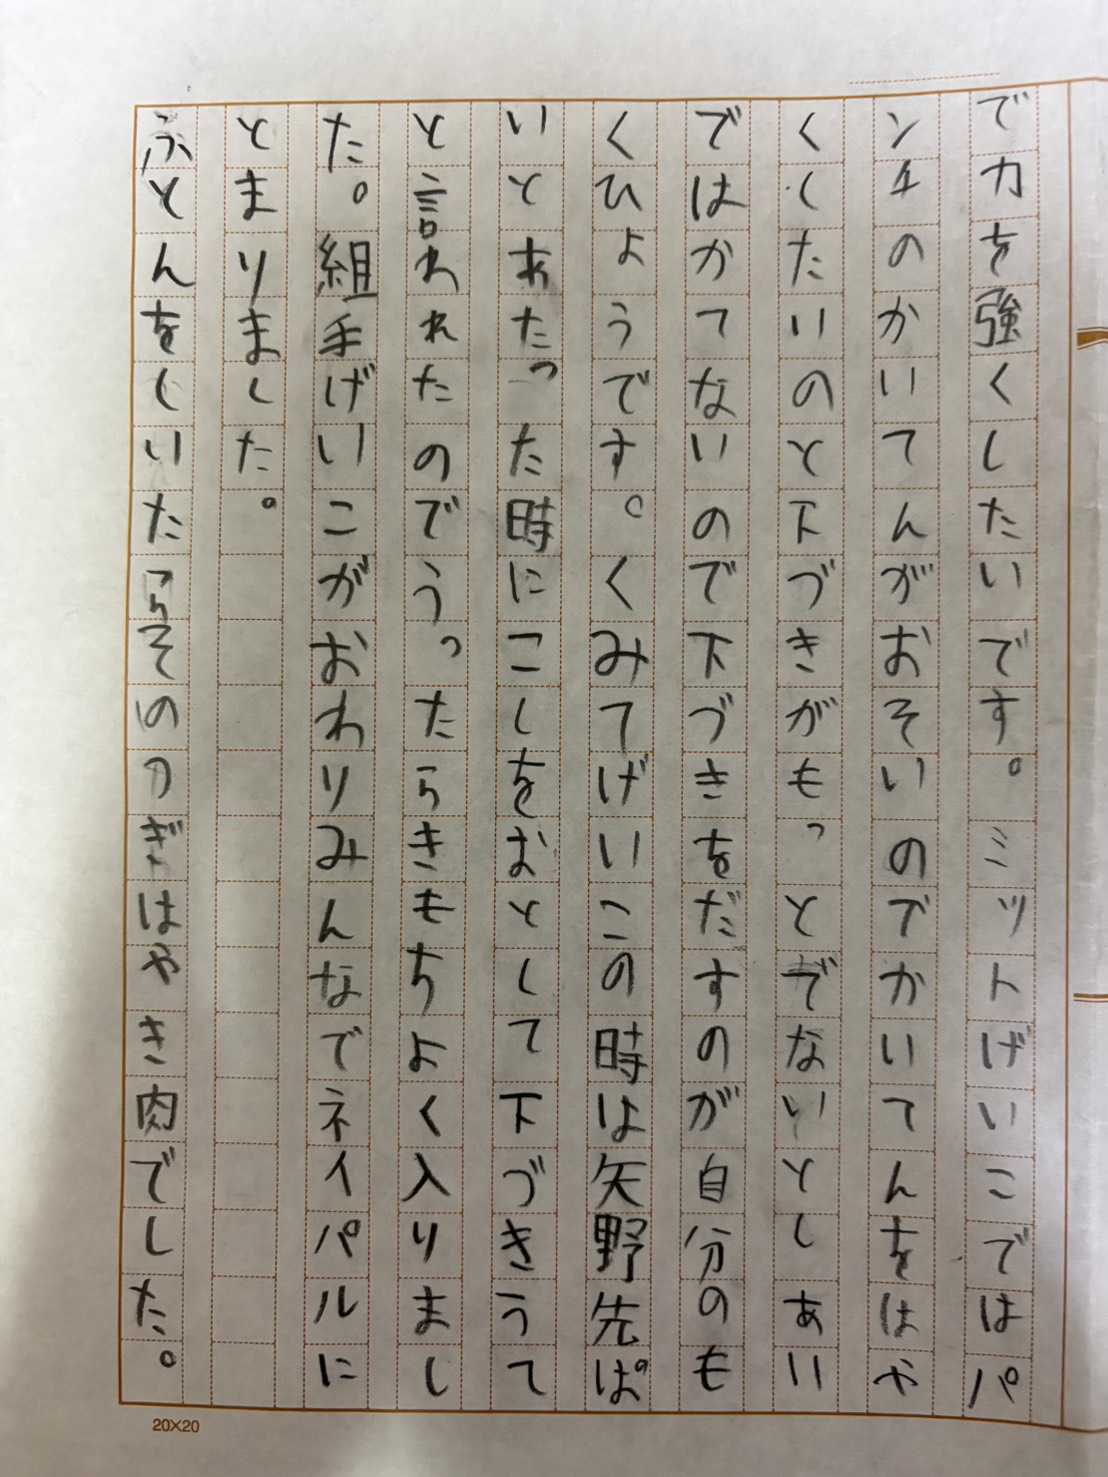 で力を強くしたいです。ミットげいこではパ
ンチのかいてんがおそいのでかいてんをはや
くしたいのと下づきがもっとでないとしあい
ではかてないので下づきをだすのが自分のも
くひょうです。くみてげいこの時は矢野先ぱ
いとあたった時にこしをおとして下づきうて
と言われたのでうったらきもちよく入りまし
た。組手げいこがおわりみんなでネイパルに
とまりました。
ふとんをしいたらそののぎはやき肉でした。
20×20